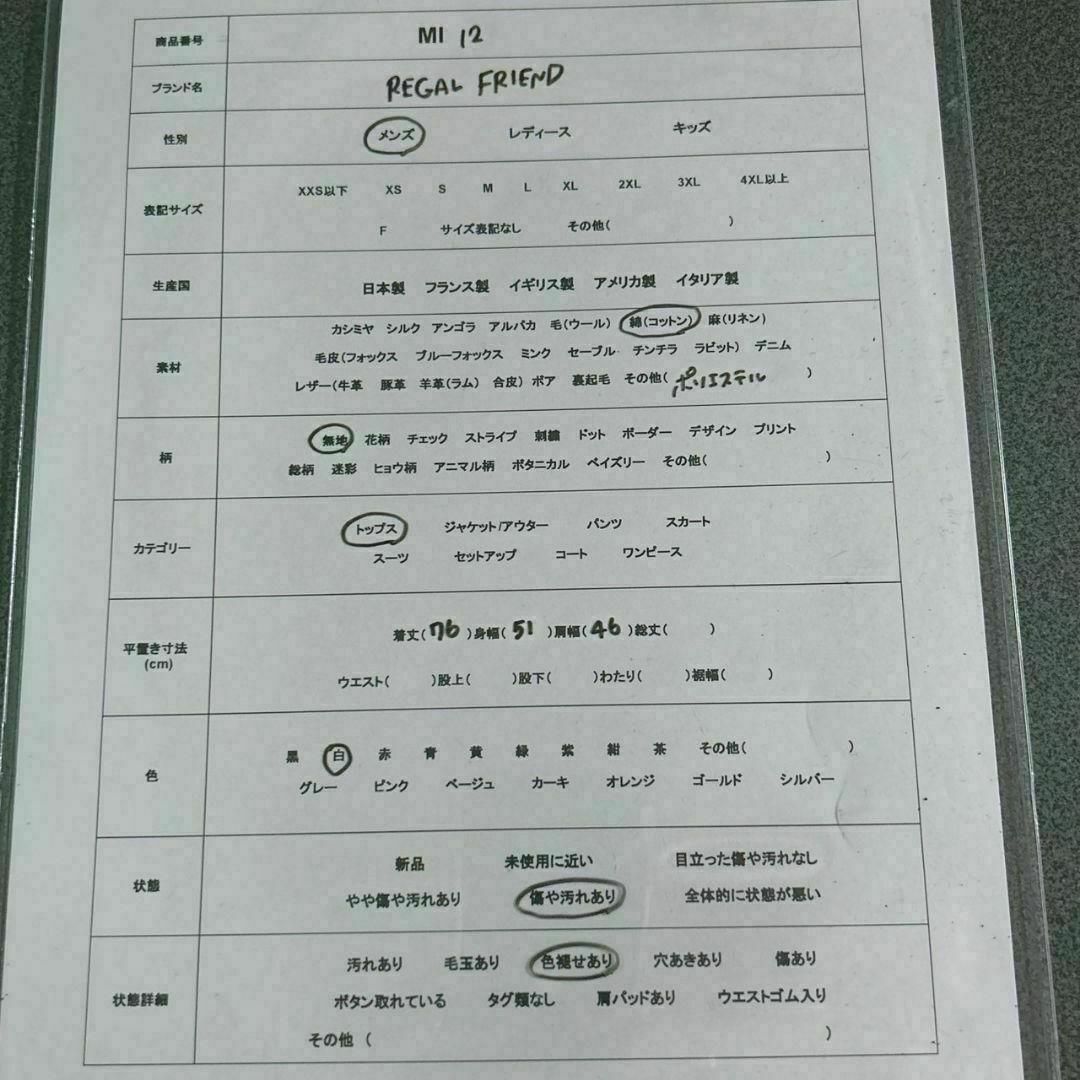 商品番号 MI 12
ブランド名 REGAL FRIEND
性別 メンズ レディース キッズ
表記サイズ
XXS以下 XS S M L XL 2XL 3XL 4XL以上
F サイズ表記なし その他( )
生産国 日本製 フランス製 イギリス製 アメリカ製 イタリア製
素材
カシミヤ シルク アンゴラ アルパカ 毛(ウール) 綿(コットン) 麻(リネン)
毛皮(フォックス ブルーフォックス ミンク セーブル チンチラ ラビット) デニム
レザー(牛革 豚革 羊革(ラム) 合皮) ボア 裏起毛 その他( ポリエステル )
柄
無地 花柄 チェック ストライプ 刺繍 ドット ボーダー デザイン プリント
総柄 迷彩 ヒョウ柄 アニマル柄 ボタニカル ペイズリー その他( )
カテゴリー
トップス ジャケット/アウター パンツ スカート
スーツ セットアップ コート ワンピース
平置き寸法
(cm)
着丈( 76 )身幅( 51 )肩幅( 46 )総丈( )
ウエスト( )股上( )股下( )わたり( )裾幅( )
色
黒 白 赤 青 黄 緑 紫 紺 茶 その他( )
グレー ピンク ベージュ カーキ オレンジ ゴールド シルバー
状態
新品 未使用に近い 目立った傷や汚れなし
やや傷や汚れあり 傷や汚れあり 全体的に状態が悪い
状態詳細
汚れあり 毛玉あり 色褪せあり 穴あきあり 傷あり
ボタン取れている タグ類なし 肩パッドあり ウエストゴム入り
その他 ( )